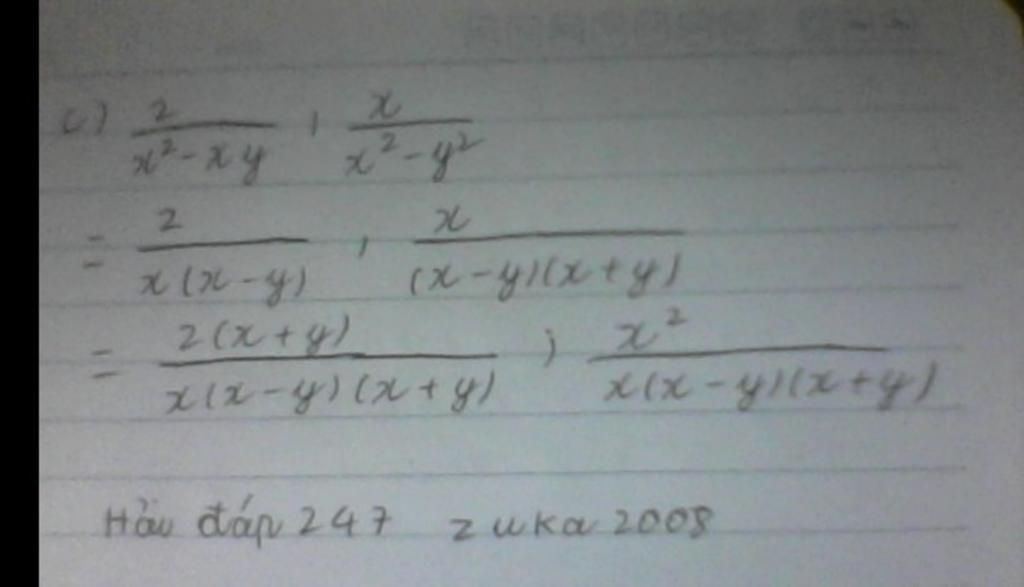 c) 2/(x²-xy) , x/(x²-y²)
= 2/(x(x-y)) , x/((x-y)(x+y))
= 2(x+y)/(x(x-y)(x+y)) ; x²/(x(x-y)(x+y))
Hỏi đáp 247 zuka 2008